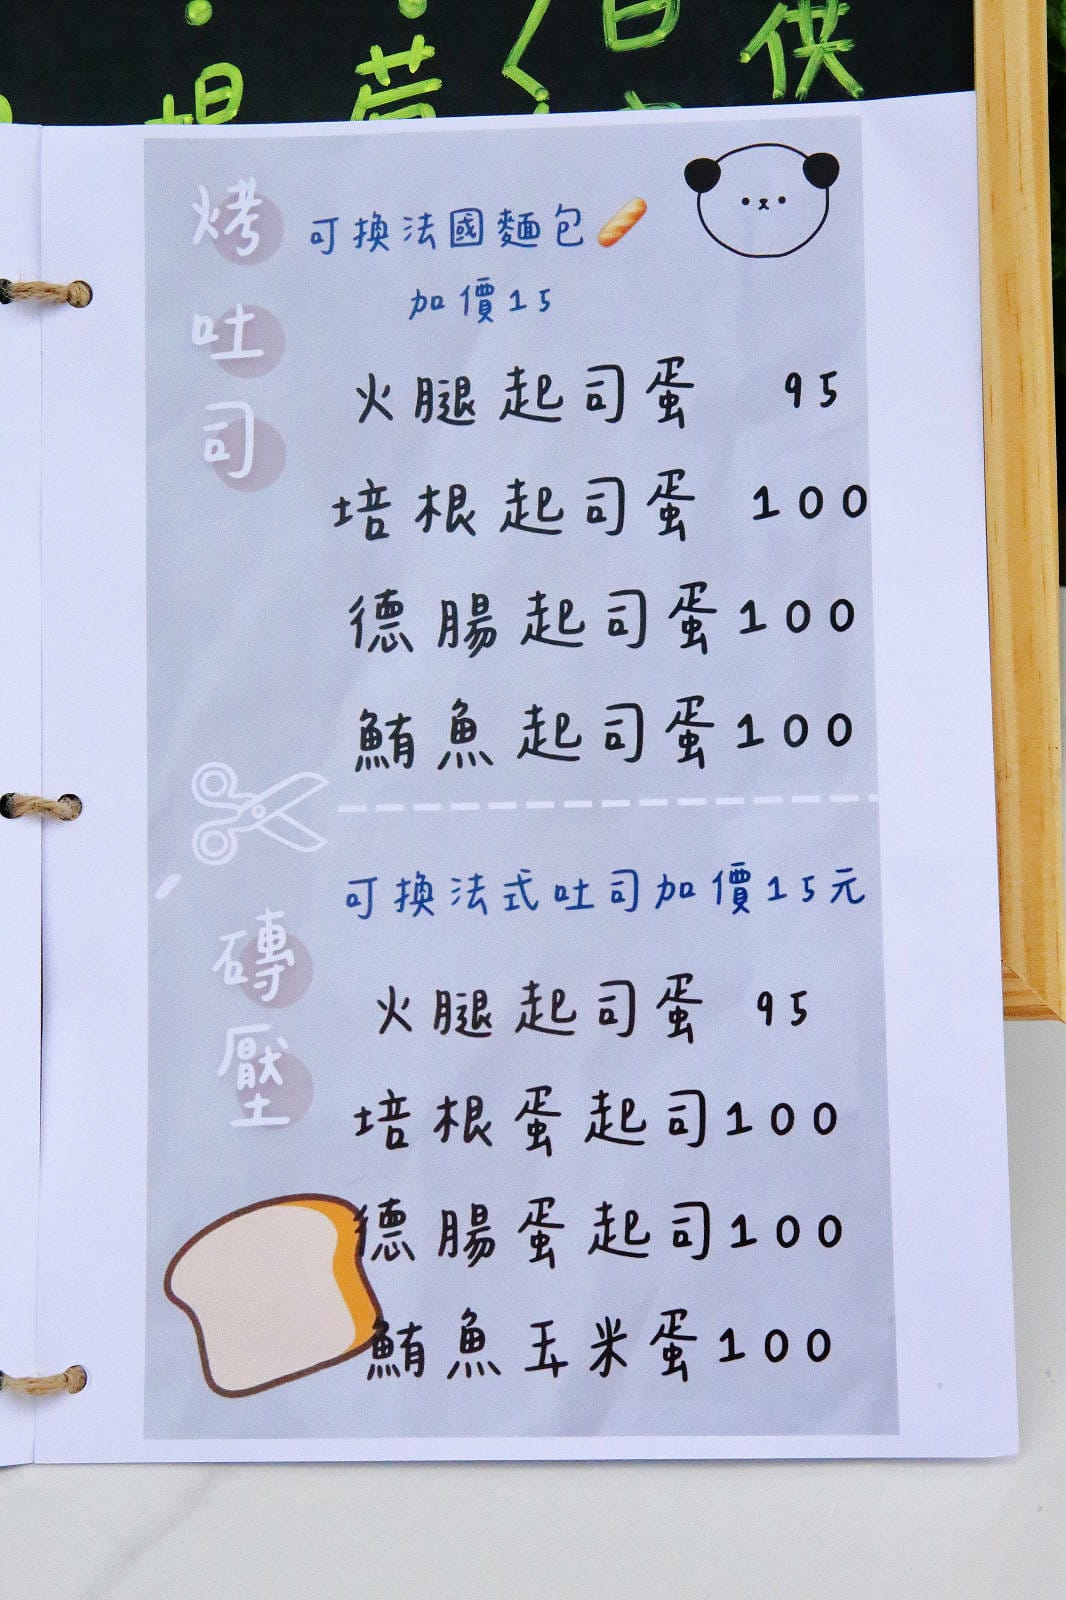 供
烤吐司
可換法國麵包
加價15
火腿起司蛋 95
培根起司蛋 100
德腸起司蛋100
鮪魚起司蛋100
磚壓
可換法式吐司加價15元
火腿起司蛋 95
培根蛋起司100
德腸蛋起司100
鮪魚玉米蛋100